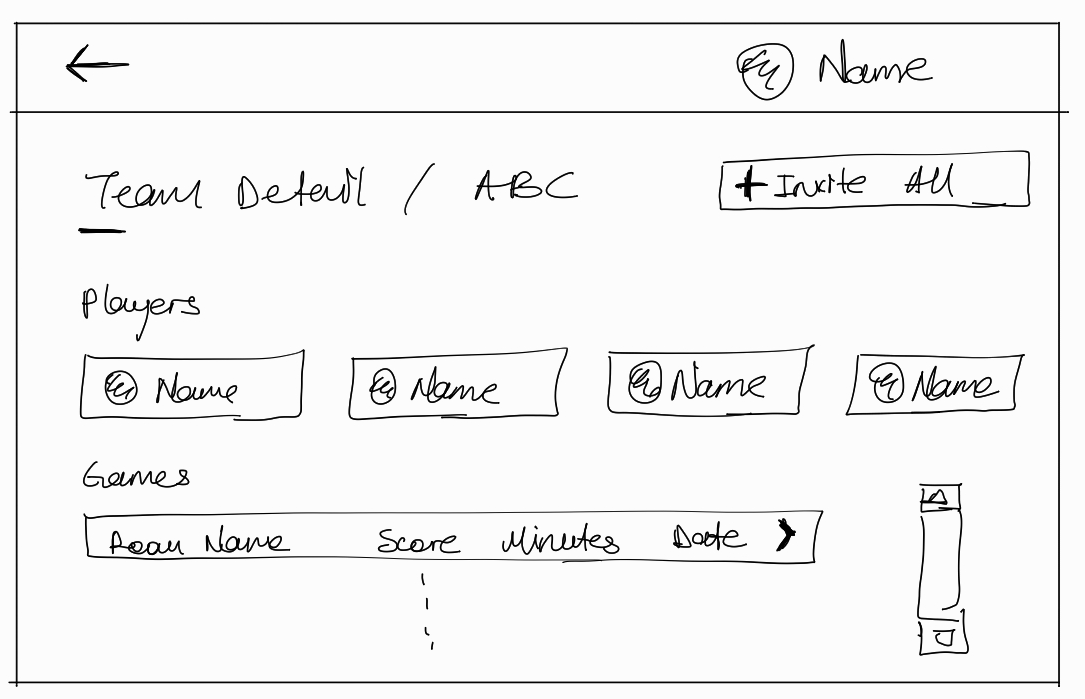 Name
Team Detail / ABC
+ Invite All
Players
Name Name Name Name
Games
Name Score Minutes Date >